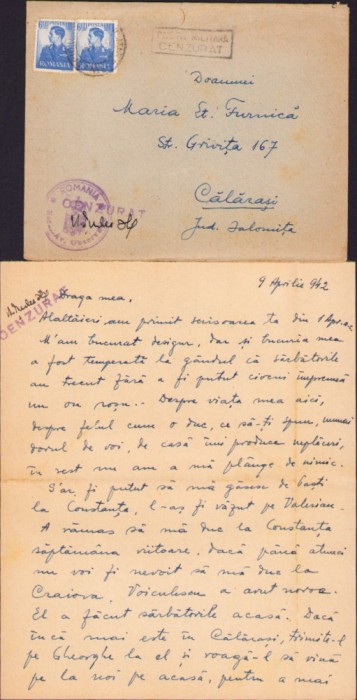 ROMANIA
ROMANIA
CENZURAT
Doamnei
Maria Et. Furnică
St. Grivița 167
Călărași
Jud. Ialomița
ROMANIA
CENZURAT
9 Aprilie 942
CENZURAT
Draga mea,
Alaltăieri am primit scrisoarea ta din 1 Apr. a.c.
M'am bucurat desigur, dar și bucuria mea
a fost temperată la gândul că sărbătorile
au trecut fără a fi putut ciocni împreună
un ou roșu.. Despre viața mea aici,
despre felul cum o duc, ce să-ți spun, numai
dorul de voi, de casă îmi produce neplăceri,
în rest nu am a mă plânge de nimic.
S'ar fi putut să mă găsesc de Paști
la Constanța, l-aș fi văzut pe Valerian.
A rămas să mă duc la Constanța
săptămâna viitoare, dacă până atunci
nu voi fi nevoit să mă duc la
Craiova. Voiculescu a avut noroc.
El a făcut sărbătorile acasă. Dacă
încă mai este în Călărași, trimite-l
pe Gheorghe la el și roagă-l să vină
pe la noi pe acasă, pentru a mai